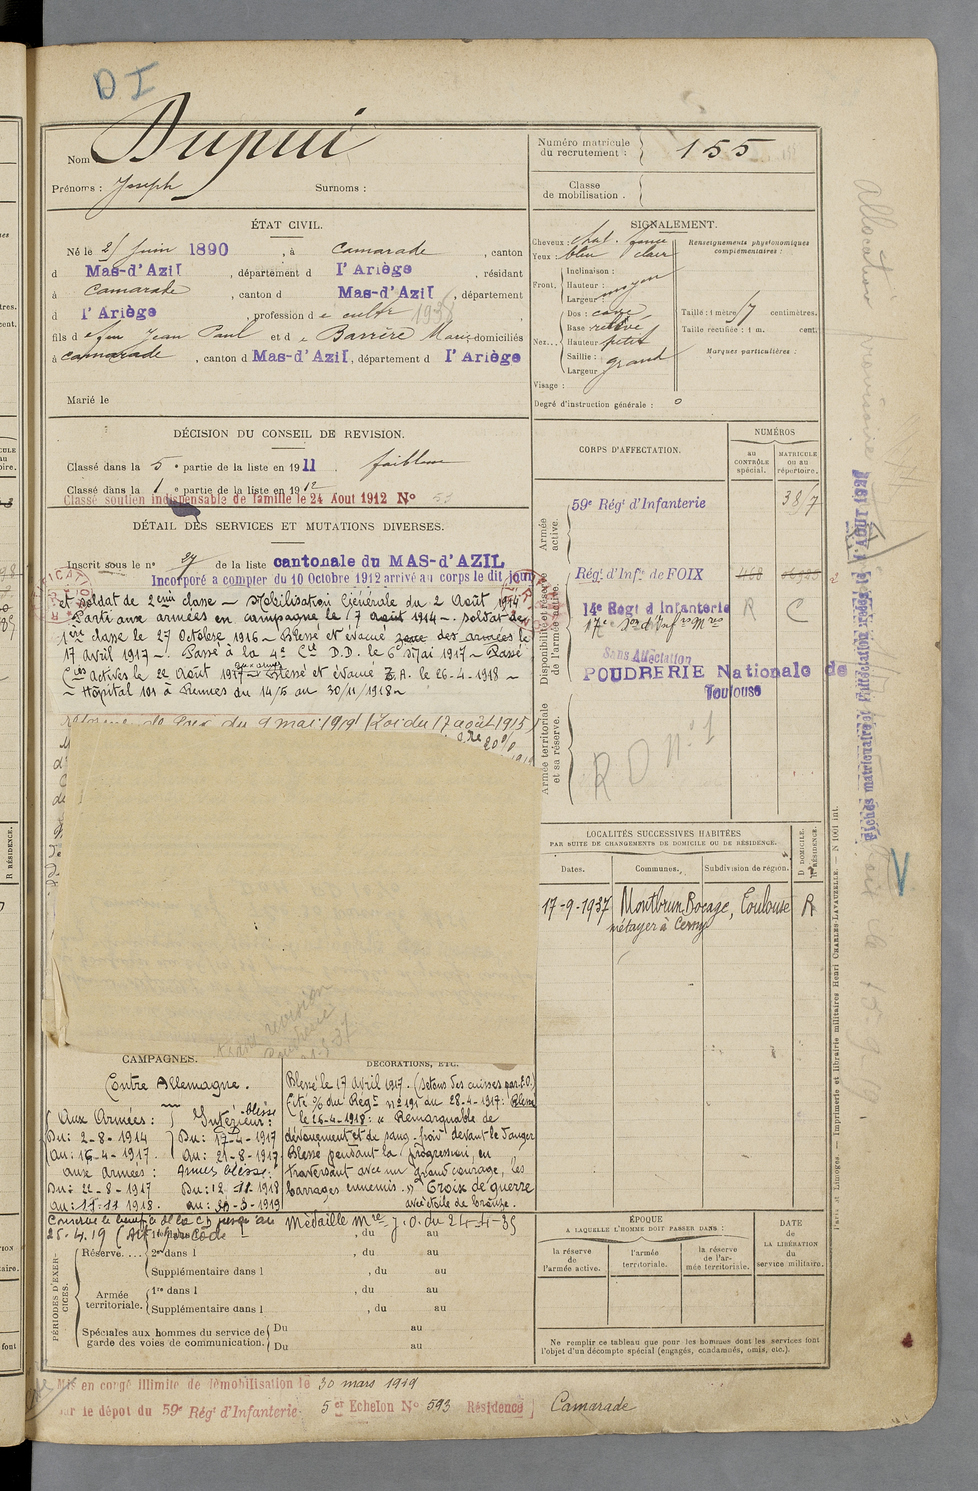 D.I
Nom Dupui
Prénoms : Joseph Surnoms :
Numéro matricule du recrutement : 155
Classe de mobilisation .
ÉTAT CIVIL.
Né le 25 Juin 1890 , à Camarade , canton
d Mas-d'Azil , département d l'Ariège , résidant
à Camarade , canton d Mas-d'Azil , département
d l'Ariège , profession de cultr
fils de feu Jean Paul et de Barrère Marie, domiciliés
à camarade , canton d Mas-d'Azil, département d l'Ariège
Marié le
SIGNALEMENT.
Cheveux : chat. foncé
Yeux : bleu clair
Front, Inclinaison :
Hauteur : moyen
Largeur
Nez... Dos : cave
Base : relevé
Hauteur petit
Saillie : grand
Largeur
Visage :
Renseignements physionomiques complémentaires :
Taille : 1 mètre 57 centimètres.
Taille rectifiée : 1 m. cent.
Marques particulières :
Degré d'instruction générale : 0
DÉCISION DU CONSEIL DE REVISION.
Classé dans la 5e partie de la liste en 1911 . faiblesse
Classé dans la 1e partie de la liste en 1912
Classé soutien indispensable de famille le 24 Aout 1912 No 53
DÉTAIL DES SERVICES ET MUTATIONS DIVERSES.
Inscrit sous le no 27 de la liste cantonale du MAS-d'AZIL
Incorporé a compter du 10 Octobre 1912 arrivé au corps le dit jour
et soldat de 2eme classe — Mobilisation Générale du 2 Août 1914
Parti aux armées en campagne le 7 août 1914 —. Soldat de
1ère classe le 27 Octobre 1916 — Blessé et évacué zone des armées le
17 avril 1917 —. Passé à la 4e Cie D.D. le 6 Mai 1917 — Passé
Cies actives le 22 Août 1917 — Blessé et évacué Z.A. le 26-4-1918 —
— Hôpital 101 à Rennes du 14/5 au 30/11/1918 —
du 9 mai 1919 (Loi du 17 août 1915)
20%
CORPS D'AFFECTATION.
NUMÉROS
au CONTRÔLE spécial.
MATRICULE ou au répertoire.
Armée active.
59e Régt d'Infanterie 3857
Disponibilité et réserve de l'armée active.
Régt d'Infie de FOIX 4168
14e Régt d Infanterie R C
Sans Affectation
POUDRERIE Nationale de
Toulouse
Armée territoriale et sa réserve.
R D no 1
LOCALITÉS SUCCESSIVES HABITÉES
PAR SUITE DE CHANGEMENTS DE DOMICILE OU DE RÉSIDENCE.
Dates. Communes. Subdivision de région. D DOMICILE. R RÉSIDENCE.
17-9-1937 Montbrun Bocage, Toulouse R
métayer à
révision
Poudrerie
CAMPAGNES.
Contre Allemagne.
Aux Armées : Intérieur : blessé
Du : 2-8-1914 Du : 17-4-1917
au : 16-4-1917. au : 21-8-1917
aux armées :
Du : 22-8-1917 Du : 12-11-1918
au : 11-11-1918. au : 30-3-1919
Conserve le bénéfice de la
25.4.19
DÉCORATIONS, ETC.
Blessé le 17 Avril 1917. (Setons des cuisses par E.O.)
Cité O/ du Régt no 191 du 28-4-1917 : Blessé
le 26-4-1918 : « Remarquable de
dévouement et de sang-froid devant le danger
Blessé pendant la progression, en
traversant avec un grand courage, les
barrages ennemis. » Croix de guerre
avec étoile de bronze.
Médaille Mre J.O. du 24-4-35
PÉRIODES D'EXERCICES.
Réserve.... 1re dans l , du au
2e dans l , du au
Supplémentaire dans l , du au
Armée territoriale. 1re dans l , du au
Supplémentaire dans l , du au
Spéciales aux hommes du service de garde des voies de communication. Du au
Du au
ÉPOQUE
A LAQUELLE L'HOMME DOIT PASSER DANS :
la réserve de l'armée active.
l'armée territoriale.
la réserve de l'armée territoriale.
DATE DE LA LIBÉRATION du service militaire.
Ne remplir ce tableau que pour les hommes dont les services font
l'objet d'un décompte spécial (engagés, condamnés, omis, etc.).
Mis en congé illimité de démobilisation le 30 mars 1919
par le dépot du 59e Régt d'Infanterie. 5er Echelon No 593 Résidence Camarade
Paris et Limoges. — Imprimerie et librairie militaires Henri CHARLES-LAVAUZELLE. — N 1001 int.